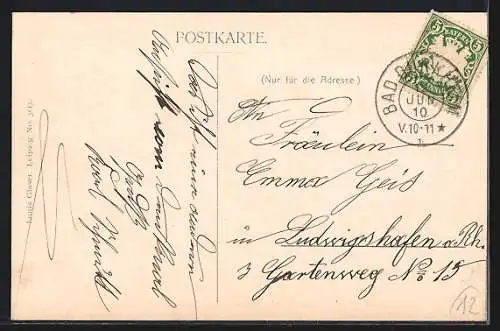 POSTKARTE.
(Nur für die Adresse.)
5 BAYERN 5
BAD
JUN
10
V.10-11 ★
An
Fräulein
Emma Geis
in Ludwigshafen a. Rh.
3 Gartenweg No 15
Das ist eine andere
Ansicht vom
Louis Glaser, Leipzig No.
12